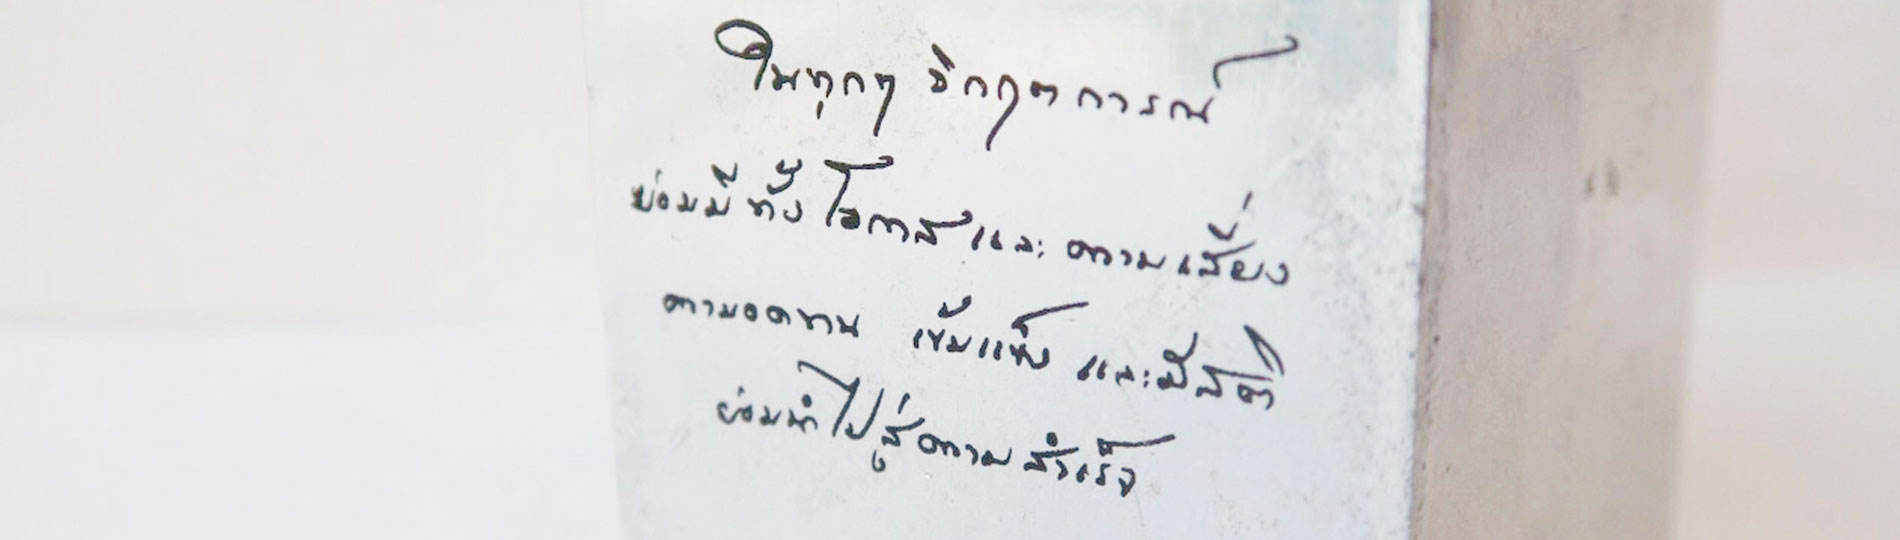 ในทุกๆ วิกฤตการณ์
ย่อมมีทั้งโอกาสและความเสี่ยง
ความอดทน เข้มแข็ง และมีสติ
ย่อมนำไปสู่ความสำเร็จ